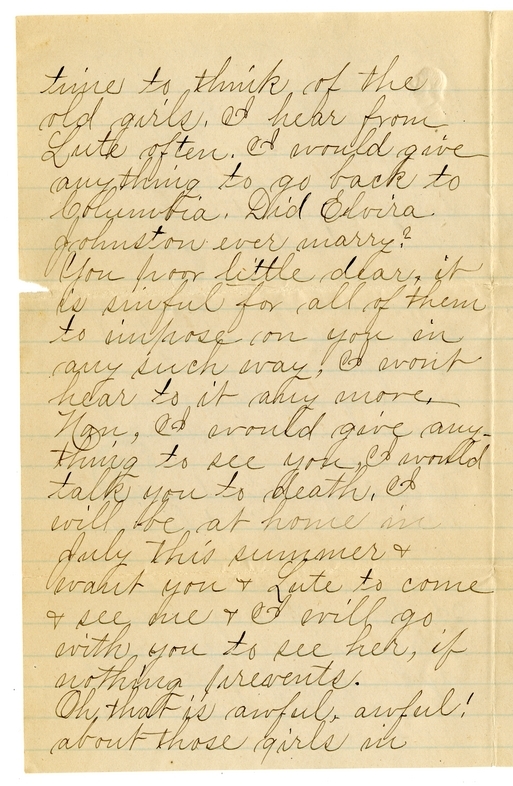 time to think of the
old girls. I hear from
Lute often. I would give
anything to go back to
Columbia. Did Elvira
Johnston ever marry?
You poor little dear, it
is sinful for all of them
to impose on you in
any such way, I wont
hear to it any more.
Nan, I would give any-
thing to see you, I would
talk you to death. I
will be at home in
July this summer &
want you & Lute to come
& see me & I will go
with you to see her, if
nothing prevents.
Oh, that is awful, awful!
about those girls in